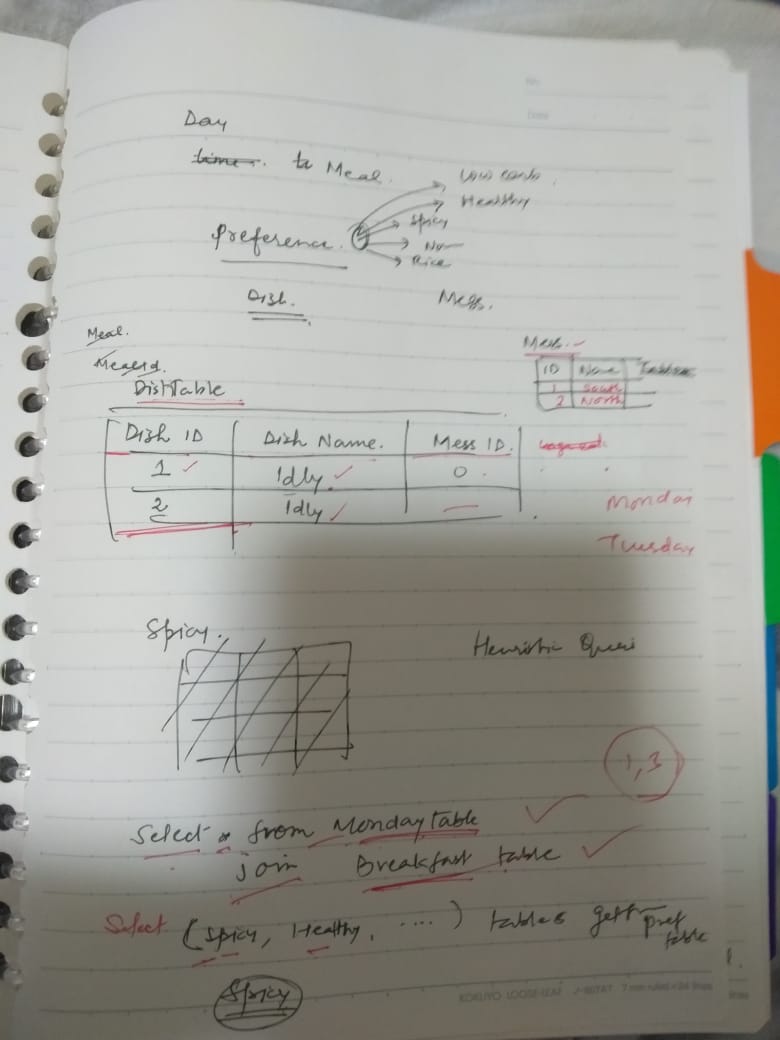 Day
time. to Meal.
Low carb
Healthy
Spicy
Preference.
Rice
Dish.
Mess.
Meal.
MealId.
Mess.
ID Name
1 South
2 North
DishTable
Dish ID Dish Name. Mess ID.
1 Idly 0
2 Idly
Monday
Tuesday
Spicy.
Heuristic
1,3
Select * from Monday table
join Breakfast table
Select (Spicy, Healthy, ....) tables get pref
table
Spicy
KOKUYO LOOSE-LEAF 7 mm ruled